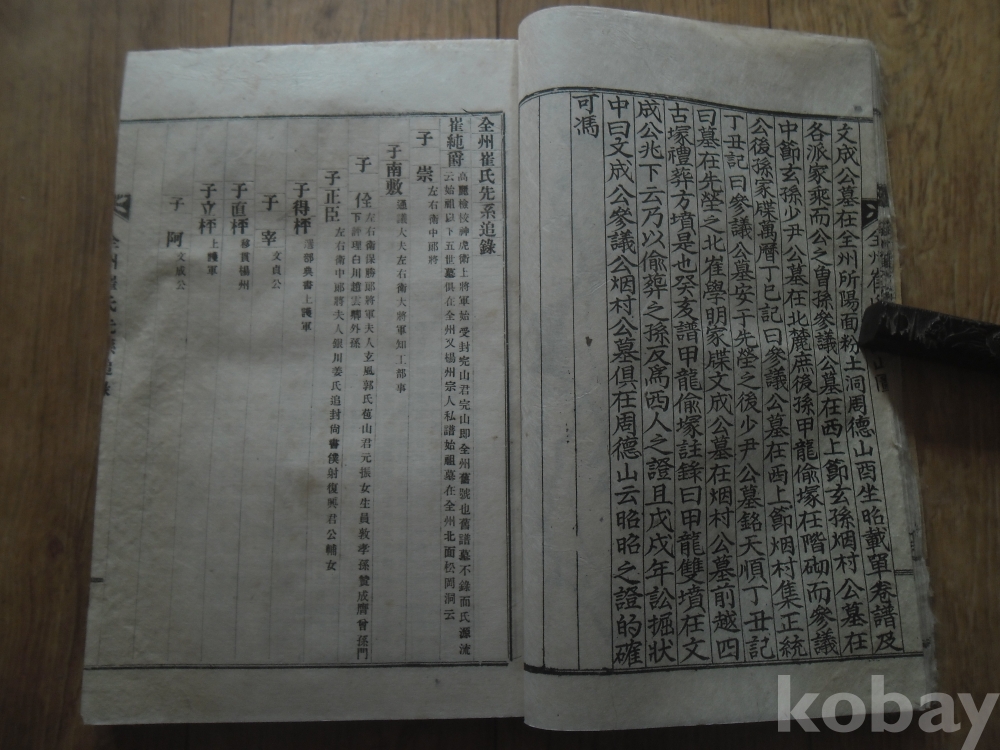 文成公墓在全州所陽面粉土洞周德山酉坐昭載單卷譜及
各派家乘而公之曾孫參議公墓在西上節玄孫烟村公墓在
中節玄孫少尹公墓在北麓庶後孫甲龍偷塚在階砌而參議
公後孫家牒萬曆丁巳記曰參議公墓在西上節烟村集正統
丁丑記曰參議公墓安于先塋之後少尹公墓銘天順丁丑記
曰墓在先塋之北崔學明家牒文成公墓在烟村公墓前越四
古塚禮葬方墳是也癸亥譜甲龍偷塚註錄曰甲龍雙墳在文
成公兆下云乃以偷葬之孫反爲西人之證且戊戌年訟掘狀
中曰文成公參議公烟村公墓俱在周德山云昭昭之證的確
可馮
全州崔氏先系追錄
崔純爵 高麗檢校神虎衛上將軍始受封完山君完山即全州舊號也舊譜墓不錄而氏源流
云始祖以下五世墓俱在全州又楊州宗人私譜始祖墓在全州北面松同洞云
子 崇 左右衛中郎將
子南敷 通議大夫左右衛大將軍知工部事
子 佺 左右衛保勝郎將軍夫人玄風郭氏苞山君元振女生員敦孝孫贊成膺曾孫門
下評理白川趙云卿外孫
子正臣 左右衛中郎將夫人銀川姜氏追封尙書僕射復興君公輔女
子得枰 選部典書上護軍
子 宰 文貞公
子直枰 移貫楊州
子立枰 上護軍
子 阿 文成公
全州崔氏先系追錄
kobay